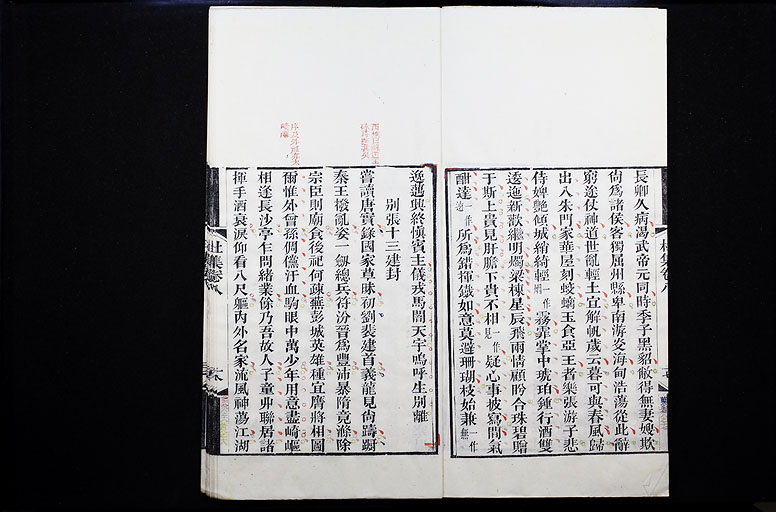 長卿久病渴武帝元同時季子黑貂敝得無妻嫂欺
尙爲諸侯客獨屈州縣卑南游炎海甸浩蕩從此辭
窮途仗神道世亂輕土宜解帆歲云暮可與春風歸
出入朱門家華屋刻蛟螭玉食亞王者樂張游子悲
侍婢艷傾城綃綺輕一作霧霏掌中琥珀鍾行酒雙
逶迤新歡繼明燭梁棟星辰飛兩情顧盼合珠碧贈
于斯上貴見肝膽下貴不相一作疑心事披寫間氣
酣達一作遠所爲錯揮鐵如意莫避珊瑚枝始兼一作無
逸邁興終愼賓主儀戎馬闇天宇嗚呼生別離
別張十三建封
嘗讀唐實錄國家草昧初劉裴建首義龍見尙躊躇
秦王撥亂姿一劒總兵符汾晉爲豐沛暴隋竟滌除
宗臣則廟食後祀何疎蕪彭城英雄種宜膺將相圖
爾惟外曾孫倜儻汗血駒眼中萬少年用意盡崎嶇
相逢長沙亭乍問緒業餘乃吾故人子童丱聯居諸
揮手洒衰淚仰看八尺軀內外名家流風神蕩江湖
杜集卷八